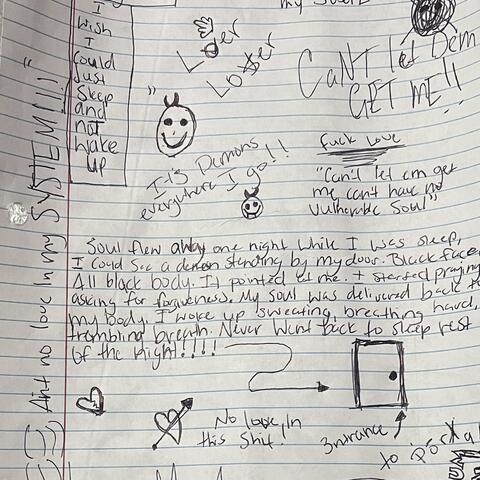 my
I
Wish
I
Could
Just
Sleep
and
not
Wake
up
Loser
Loster
Can't let Dem
GET ME!!
"Ain't no love In my SYSTEM!!!!"
Its Demons
everywhere I go!!
Fuck love
"Can't let em get
me can't have no
vulnerable Soul"
Soul flew away one night while I was sleep,
I could see a demon standing by my door. Black face
All black body. It pointed at me. I started praying
asking for forgiveness. My soul was delivered back to
my body. I woke up sweating, breathing hard,
trembling breath. Never went back to sleep rest
of the night!!!!
No love In
this Shit!
3ntrance
to